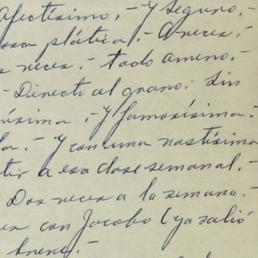 Afectísimo.- Y Seguro.-
sa plática.- A veces.-
s veces.- todo ameno.-
- Directo al grano.- Sin
ísima.- Y famosísima.-
la.- Y con una nastísima
tir a esa clase semanal.-
- Dos veces a la semana.-
es con Jacobo (ya salió